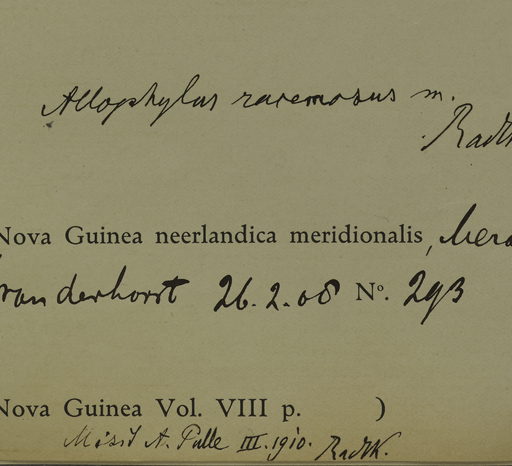 Allophylus racemosus m.
Radlk
Nova Guinea neerlandica meridionalis,
van derhorst 26.2.08 Nº. 293
Nova Guinea Vol. VIII p. )
Misit A. Pulle III. 1910. Radlk.